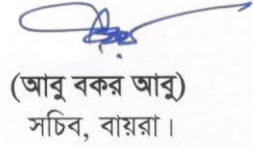 (আবু বকর আবু)
সচিব, বায়রা।